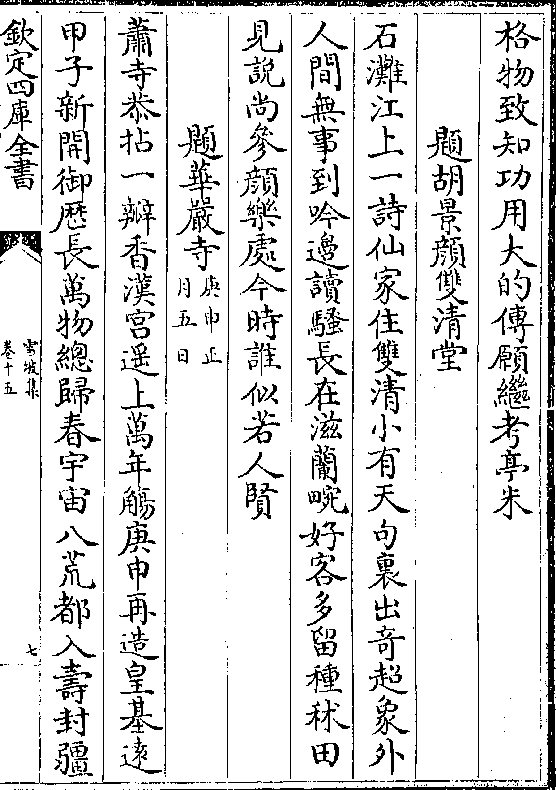 格物致知功用大的傳願繼考亭朱
題胡景顔雙清堂
石灘江上一詩仙家住雙清小有天句裏出竒超象外
人間無事到吟邊讀騷長在滋蘭畹好客多留種秫田
見説尚參顔樂處今時誰似若人賢
題華嚴寺庚申正月五日
蕭寺恭拈一瓣香漢宫遥上萬年觴庚申再造皇基逺
甲子新開御厯長萬物總歸春宇宙八荒都入壽封疆
欽定四庫全書
雪坡集
卷十五
七